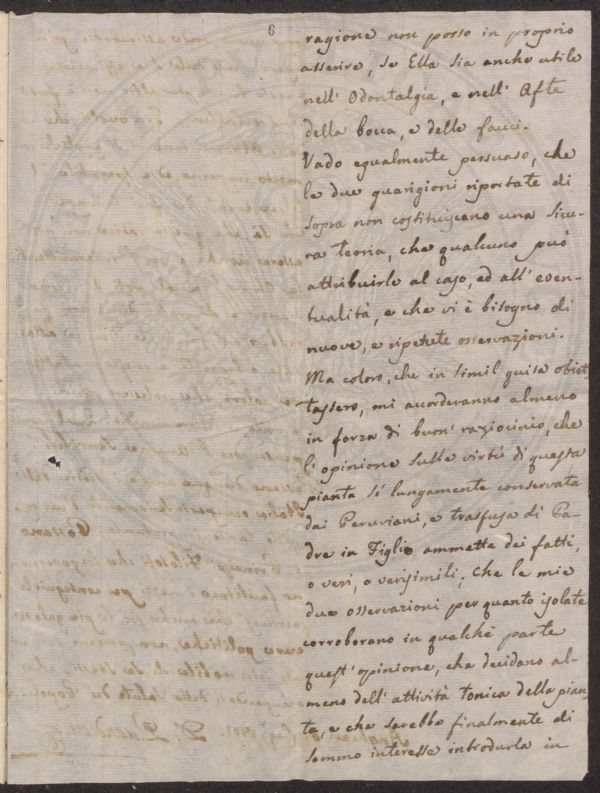 6
ragione non posso in proprio
asserire, se Ella sia anche utile
nell' Odontalgia, e nell' Afte
della bocca, e delle fauci.
Vado egualmente persuaso, che
le due guarigioni riportate di
sopra non costituiscano una sicu-
ra teoria, che qualcuno può
attribuirle al caso, ed all' even-
tualità, e che vi è bisogno di
nuove, e ripetute osservazioni.
Ma coloro, che in simil guisa obiet
tassero, mi accorderanno almeno
in forza di buon' raziocinio, che
l' opinione sulle virtù di questa
pianta sì lungamente conservata
dai Peruviani, e trasfusa di Pa-
dre in Figlio ammette dei fatti,
o veri, o verisimili; Che le mie
due osservazioni per quanto isolate
corroborano in qualche parte
quest' opinione, che decidano al-
meno dell' attività tonica della pian-
ta, e che sarebbe finalmente di
sommo interesse introdurla in